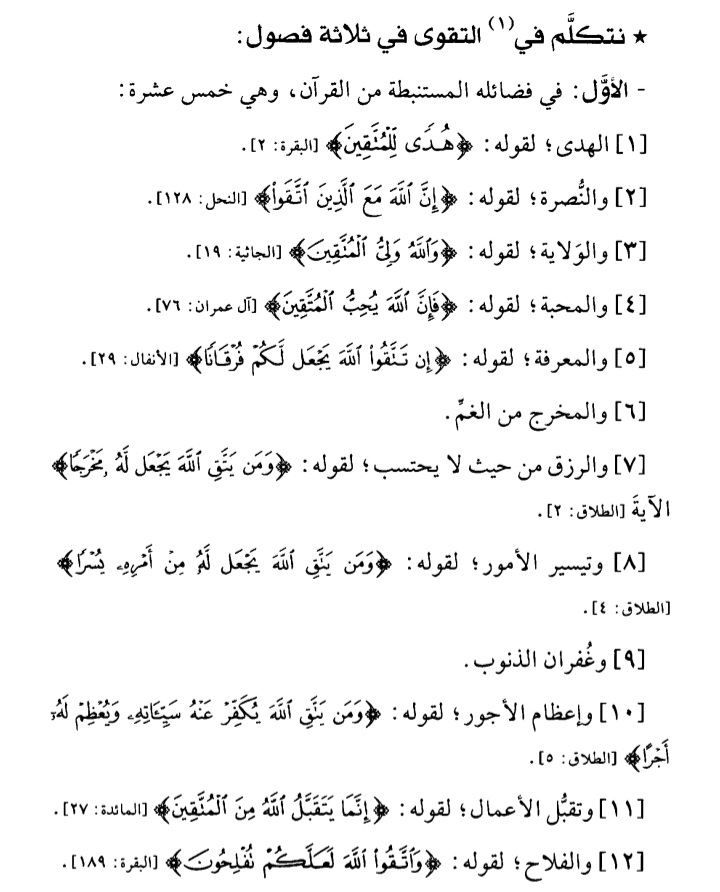 ★ نتكلَّم في(١) التقوى في ثلاثة فصول:
- الأوَّل: في فضائله المستنبطة من القرآن، وهي خمس عشرة:
[١] الهدى؛ لقوله: ﴿هُدًى لِّلْمُتَّقِينَ﴾ [البقرة: ٢].
[٢] والنُّصرة؛ لقوله: ﴿إِنَّ ٱللَّهَ مَعَ ٱلَّذِينَ ٱتَّقَوا۟﴾ [النحل: ١٢٨].
[٣] والوَلاية؛ لقوله: ﴿وَٱللَّهُ وَلِىُّ ٱلْمُتَّقِينَ﴾ [الجاثية: ١٩].
[٤] والمحبة؛ لقوله: ﴿فَإِنَّ ٱللَّهَ يُحِبُّ ٱلْمُتَّقِينَ﴾ [آل عمران: ٧٦].
[٥] والمعرفة؛ لقوله: ﴿إِن تَتَّقُوا۟ ٱللَّهَ يَجْعَل لَّكُمْ فُرْقَانًا﴾ [الأنفال: ٢٩].
[٦] والمخرج من الغمِّ.
[٧] والرزق من حيث لا يحتسب؛ لقوله: ﴿وَمَن يَتَّقِ ٱللَّهَ يَجْعَل لَّهُۥ مَخْرَجًا﴾
الآيةَ [الطلاق: ٢].
[٨] وتيسير الأمور؛ لقوله: ﴿وَمَن يَتَّقِ ٱللَّهَ يَجْعَل لَّهُۥ مِنْ أَمْرِهِۦ يُسْرًا﴾
[الطلاق: ٤].
[٩] وغُفران الذنوب.
[١٠] وإعظام الأجور؛ لقوله: ﴿وَمَن يَتَّقِ ٱللَّهَ يُكَفِّرْ عَنْهُ سَيِّـَٔاتِهِۦ وَيُعْظِمْ لَهُۥٓ
أَجْرًا﴾ [الطلاق: ٥].
[١١] وتقبُّل الأعمال؛ لقوله: ﴿إِنَّمَا يَتَقَبَّلُ ٱللَّهُ مِنَ ٱلْمُتَّقِينَ﴾ [المائدة: ٢٧].
[١٢] والفلاح؛ لقوله: ﴿وَٱتَّقُوا۟ ٱللَّهَ لَعَلَّكُمْ تُفْلِحُونَ﴾ [البقرة: ١٨٩].